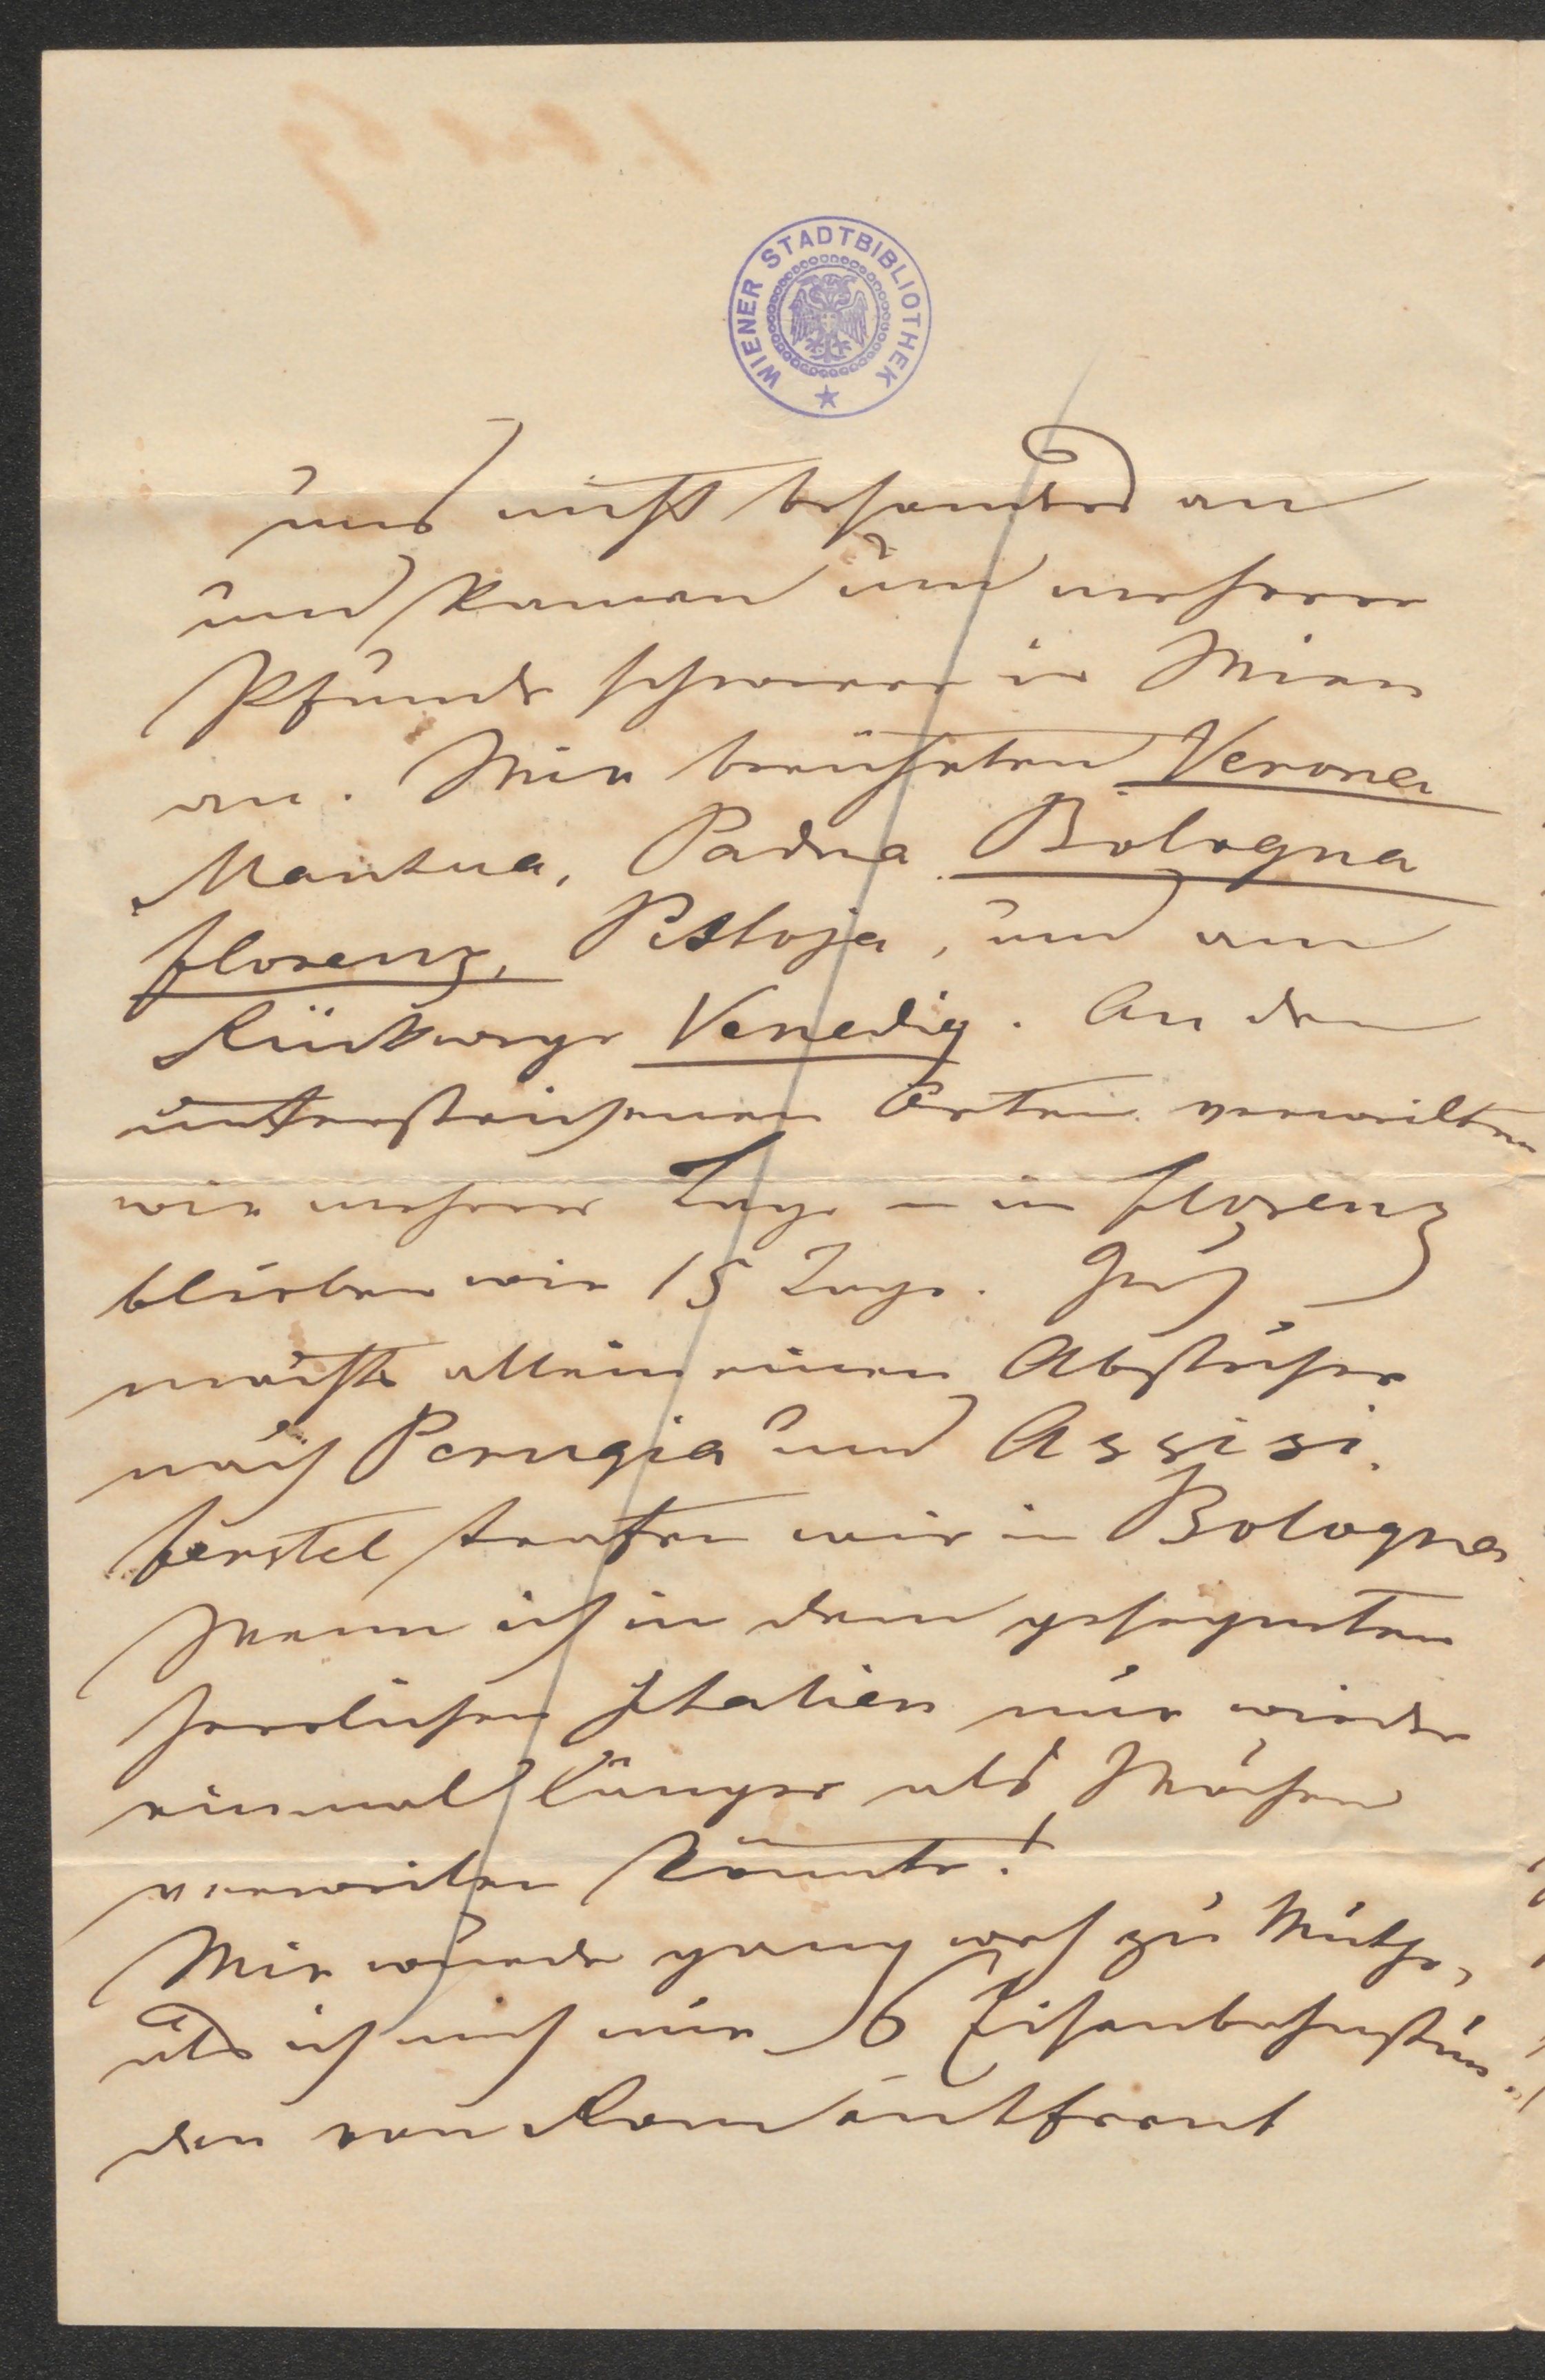 WIENER STADTBIBLIOTHEK
uns nicht besonders an
und kamen um mehrere
Pfunde schwerer in Wien
an. Wir berührten Verona
Mantua, Padua Bologna
Florenz, Pistoja, und am
Rückwege Venedig. An den
unterstrichenen Orten verweilten
wir mehrere Tage – in Florenz
blieben wir 15 Tage.
machte allein einen Abstecher
nach Perugia und Assisi.
Ferstel trafen wir in Bologna
Wenn ich in dem gesegneten
herrlichen Italien nur wieder
einmal länger als Wochen
verweilen könnte!
Mir wurde ganz weh zu Muthe,
als ich mich nur 6 Eisenbahnstun-
den von Rom entfernt